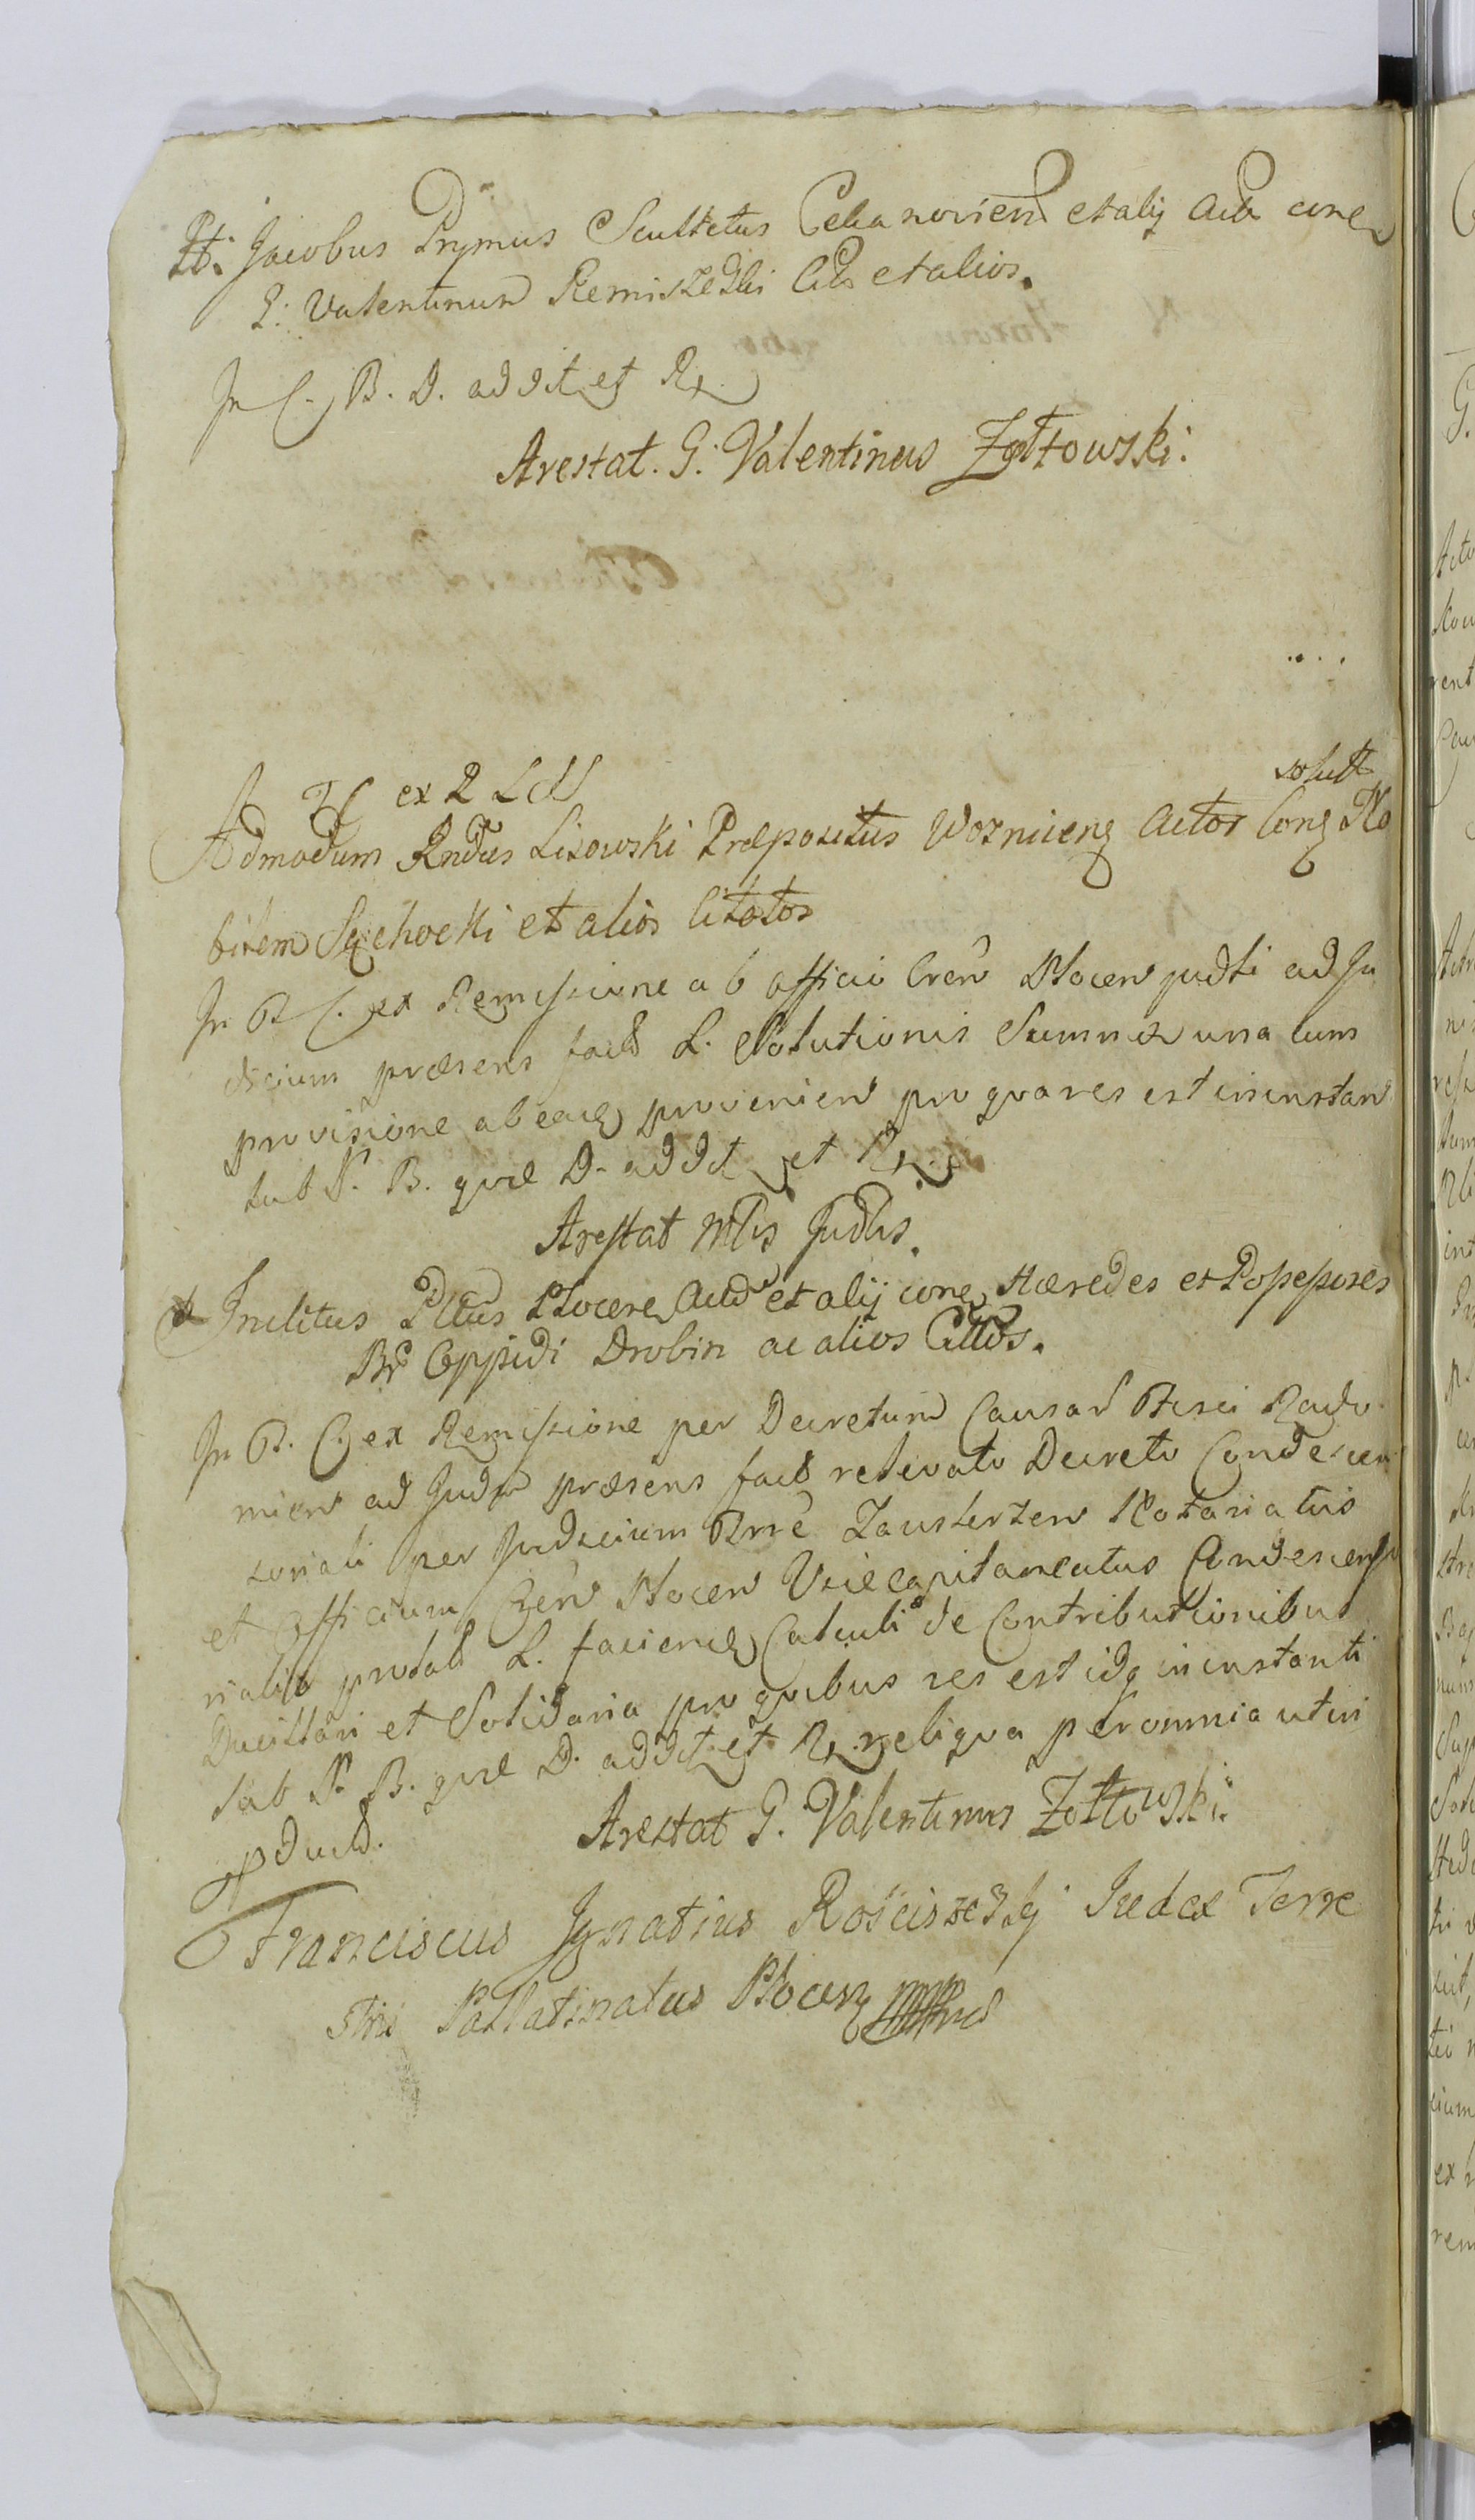 Jacobus Prymus Scultetus Cekanovien et alij Acto cone
G: Valentinum Remiszewski Citt et alios.
In C. B. D. addit et R
Arestat. G. Valentinus Zołtowski.
ex 2 
solutt
Admodum Rndus Lisowski Præpositus Woznicen Actor Con No
bilem Suchocki et alios Citatos
In R C. ex Remissione ab officio Cren Plocen judli ad Ju
dicium præsens fact L. Solutionis Summæ una cum
provisione ab eaq provenien pro qua res est in instan
sub P. B. quæ D. addit et R
Arestat Mtis Judlis.
Inclitus Pltus Plocen Act et alij cone Hæredes et Possessores
Br Oppidi Drobin ac alios Cittos.
In R. C. ex Remissione per Decretum Causar Fisci Rado
mien ad Judm præsens fact relevato Decreto Condescen
soriali per Judicium Zauskrzen Notariatus
et Officium Cren Plocen Vice Capitaneatus Condescenso
rialit prolat L. faciend Calculi de Contributionibus
Ducillari et Solidaria pro quibus res est idq in instanti
sub P. B. quæ D. addit et R reliqua per omnia uti in
pduct.
Arestat G. Valentinus Zołtowski.
Franciscus Ignatius Rościszewski Iudex Terre
stris Pallatinatus Plocen